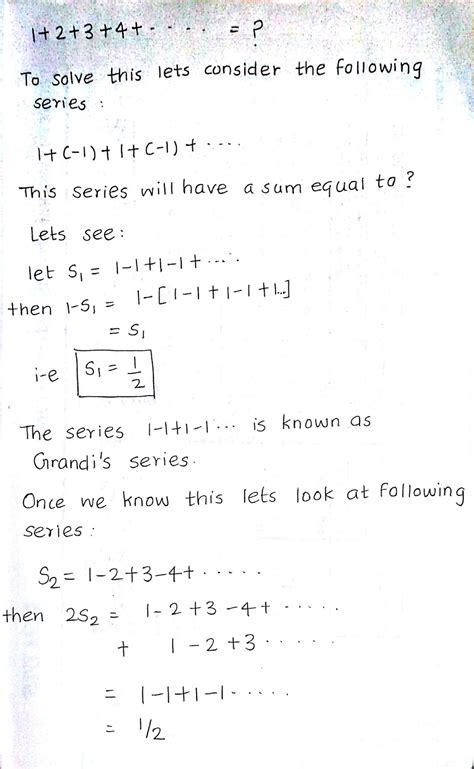 1+2+3+4+ · · · · = ?
To solve this lets consider the following
series :
1+(-1)+1+(-1)+ · · · ·
This series will have a sum equal to ?
Lets see:
let S₁ = 1-1+1-1+ · · · ·
then 1-S₁ = 1-[1-1+1-1+1...]
= S₁
i-e S₁ = 1/2
The series 1-1+1-1··· is known as
Grandi's series.
Once we know this lets look at following
series :
S₂= 1-2+3-4+ · · · · ·
then 2S₂ = 1-2+3-4+ · · · · ·
+ 1-2+3 · · · · ·
= 1-1+1-1 · · · · ·
= 1/2